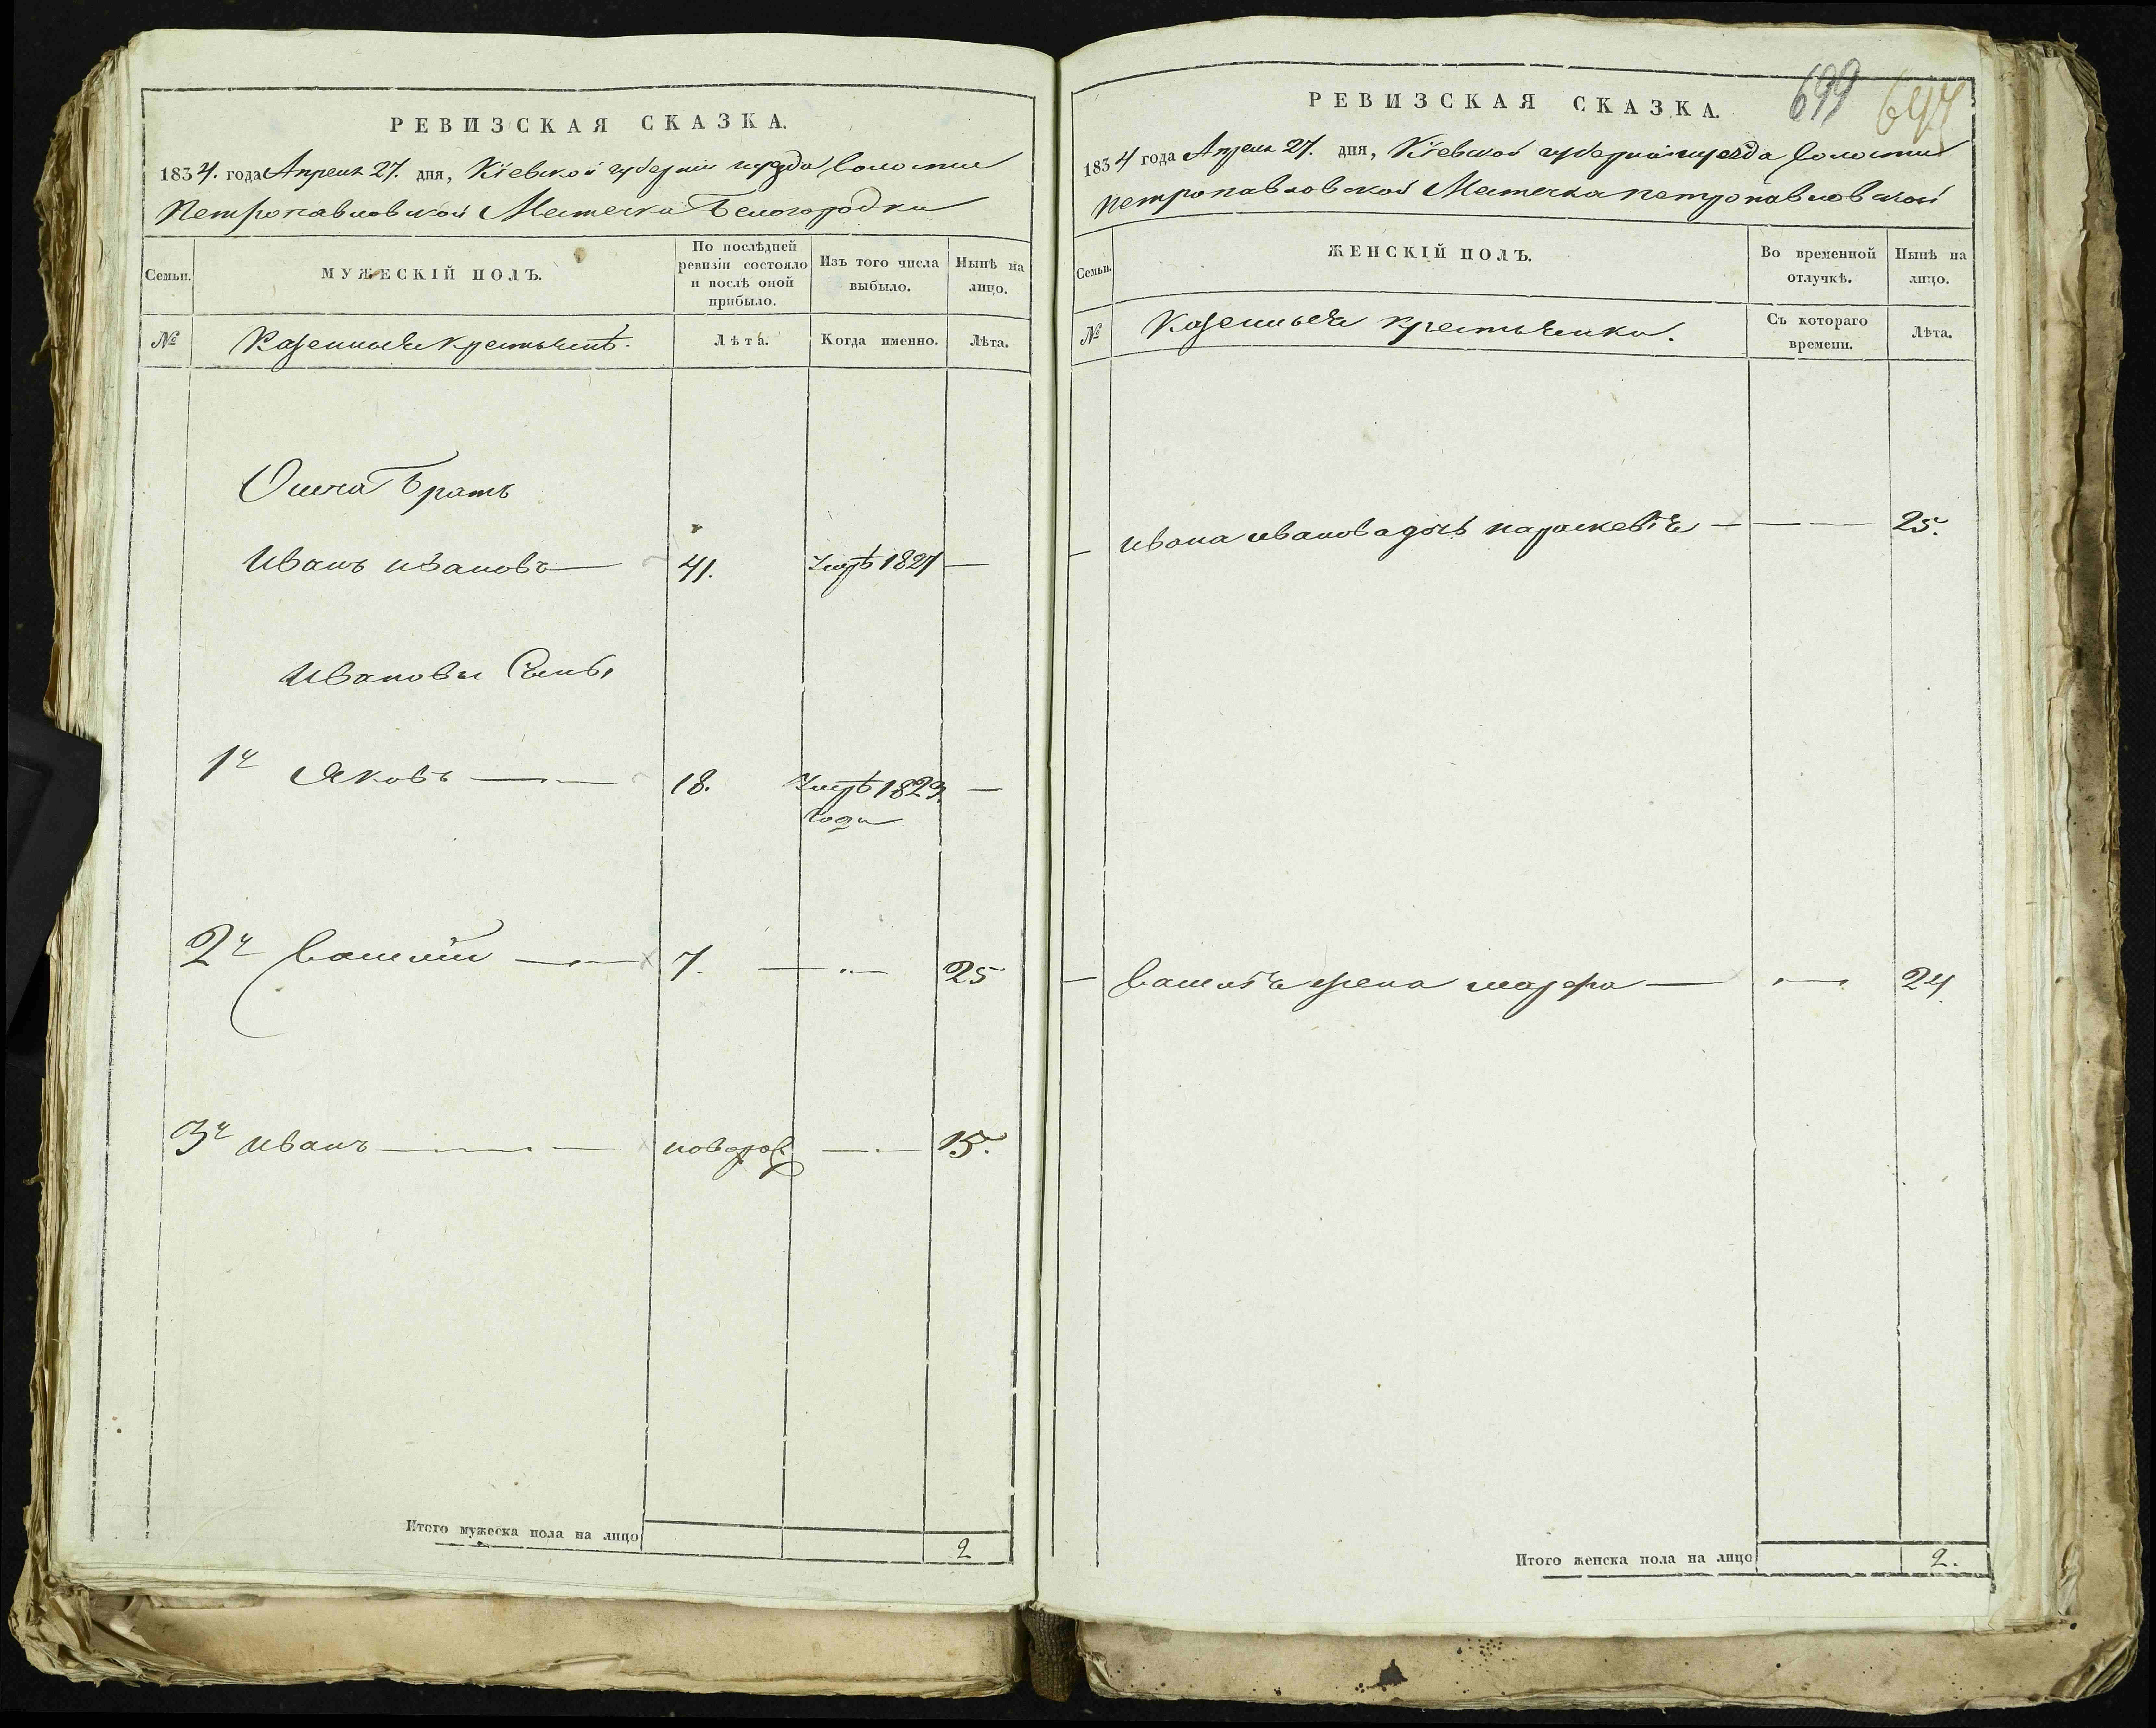 РЕВИЗСКАЯ СКАЗКА.
1834. года Апреля 27. дня, Кіевской губерніи и уезда Волости
Петропавловской Местечка Белогородки
Семьи.
МУЖЕСКІЙ ПОЛЪ.
По послѣдней ревизіи состояло и послѣ оной прибыло.
Изъ того числа выбыло.
Нынѣ на лицо.
№
Казенные крестьянѣ.
Лѣта.
Когда именно.
Лѣта.
братъ
Иванъ Ивановъ — 41. Умрѣ 1821 —
Ивановы Сыны
1й Яковъ — 18. Умрѣ 1823. —
года
2й Василій — 7. — 25
3й Иванъ — новорож. — 15.
Итого мужеска пола на лицо 2
699
РЕВИЗСКАЯ СКАЗКА.
1834 года Апреля 27. дня, Кіевской губерніи и уезда Волости
Петропавловской Местечка Петропавловской
Семьи.
ЖЕНСКІЙ ПОЛЪ.
Во временной отлучкѣ.
Нынѣ на лицо.
№
Казенные крестьянки.
Съ котораго времени.
Лѣта.
— Ивана Иванова дочь — — 25.
— Василія жена марфа — — 24.
Итого женска пола на лицо 2.